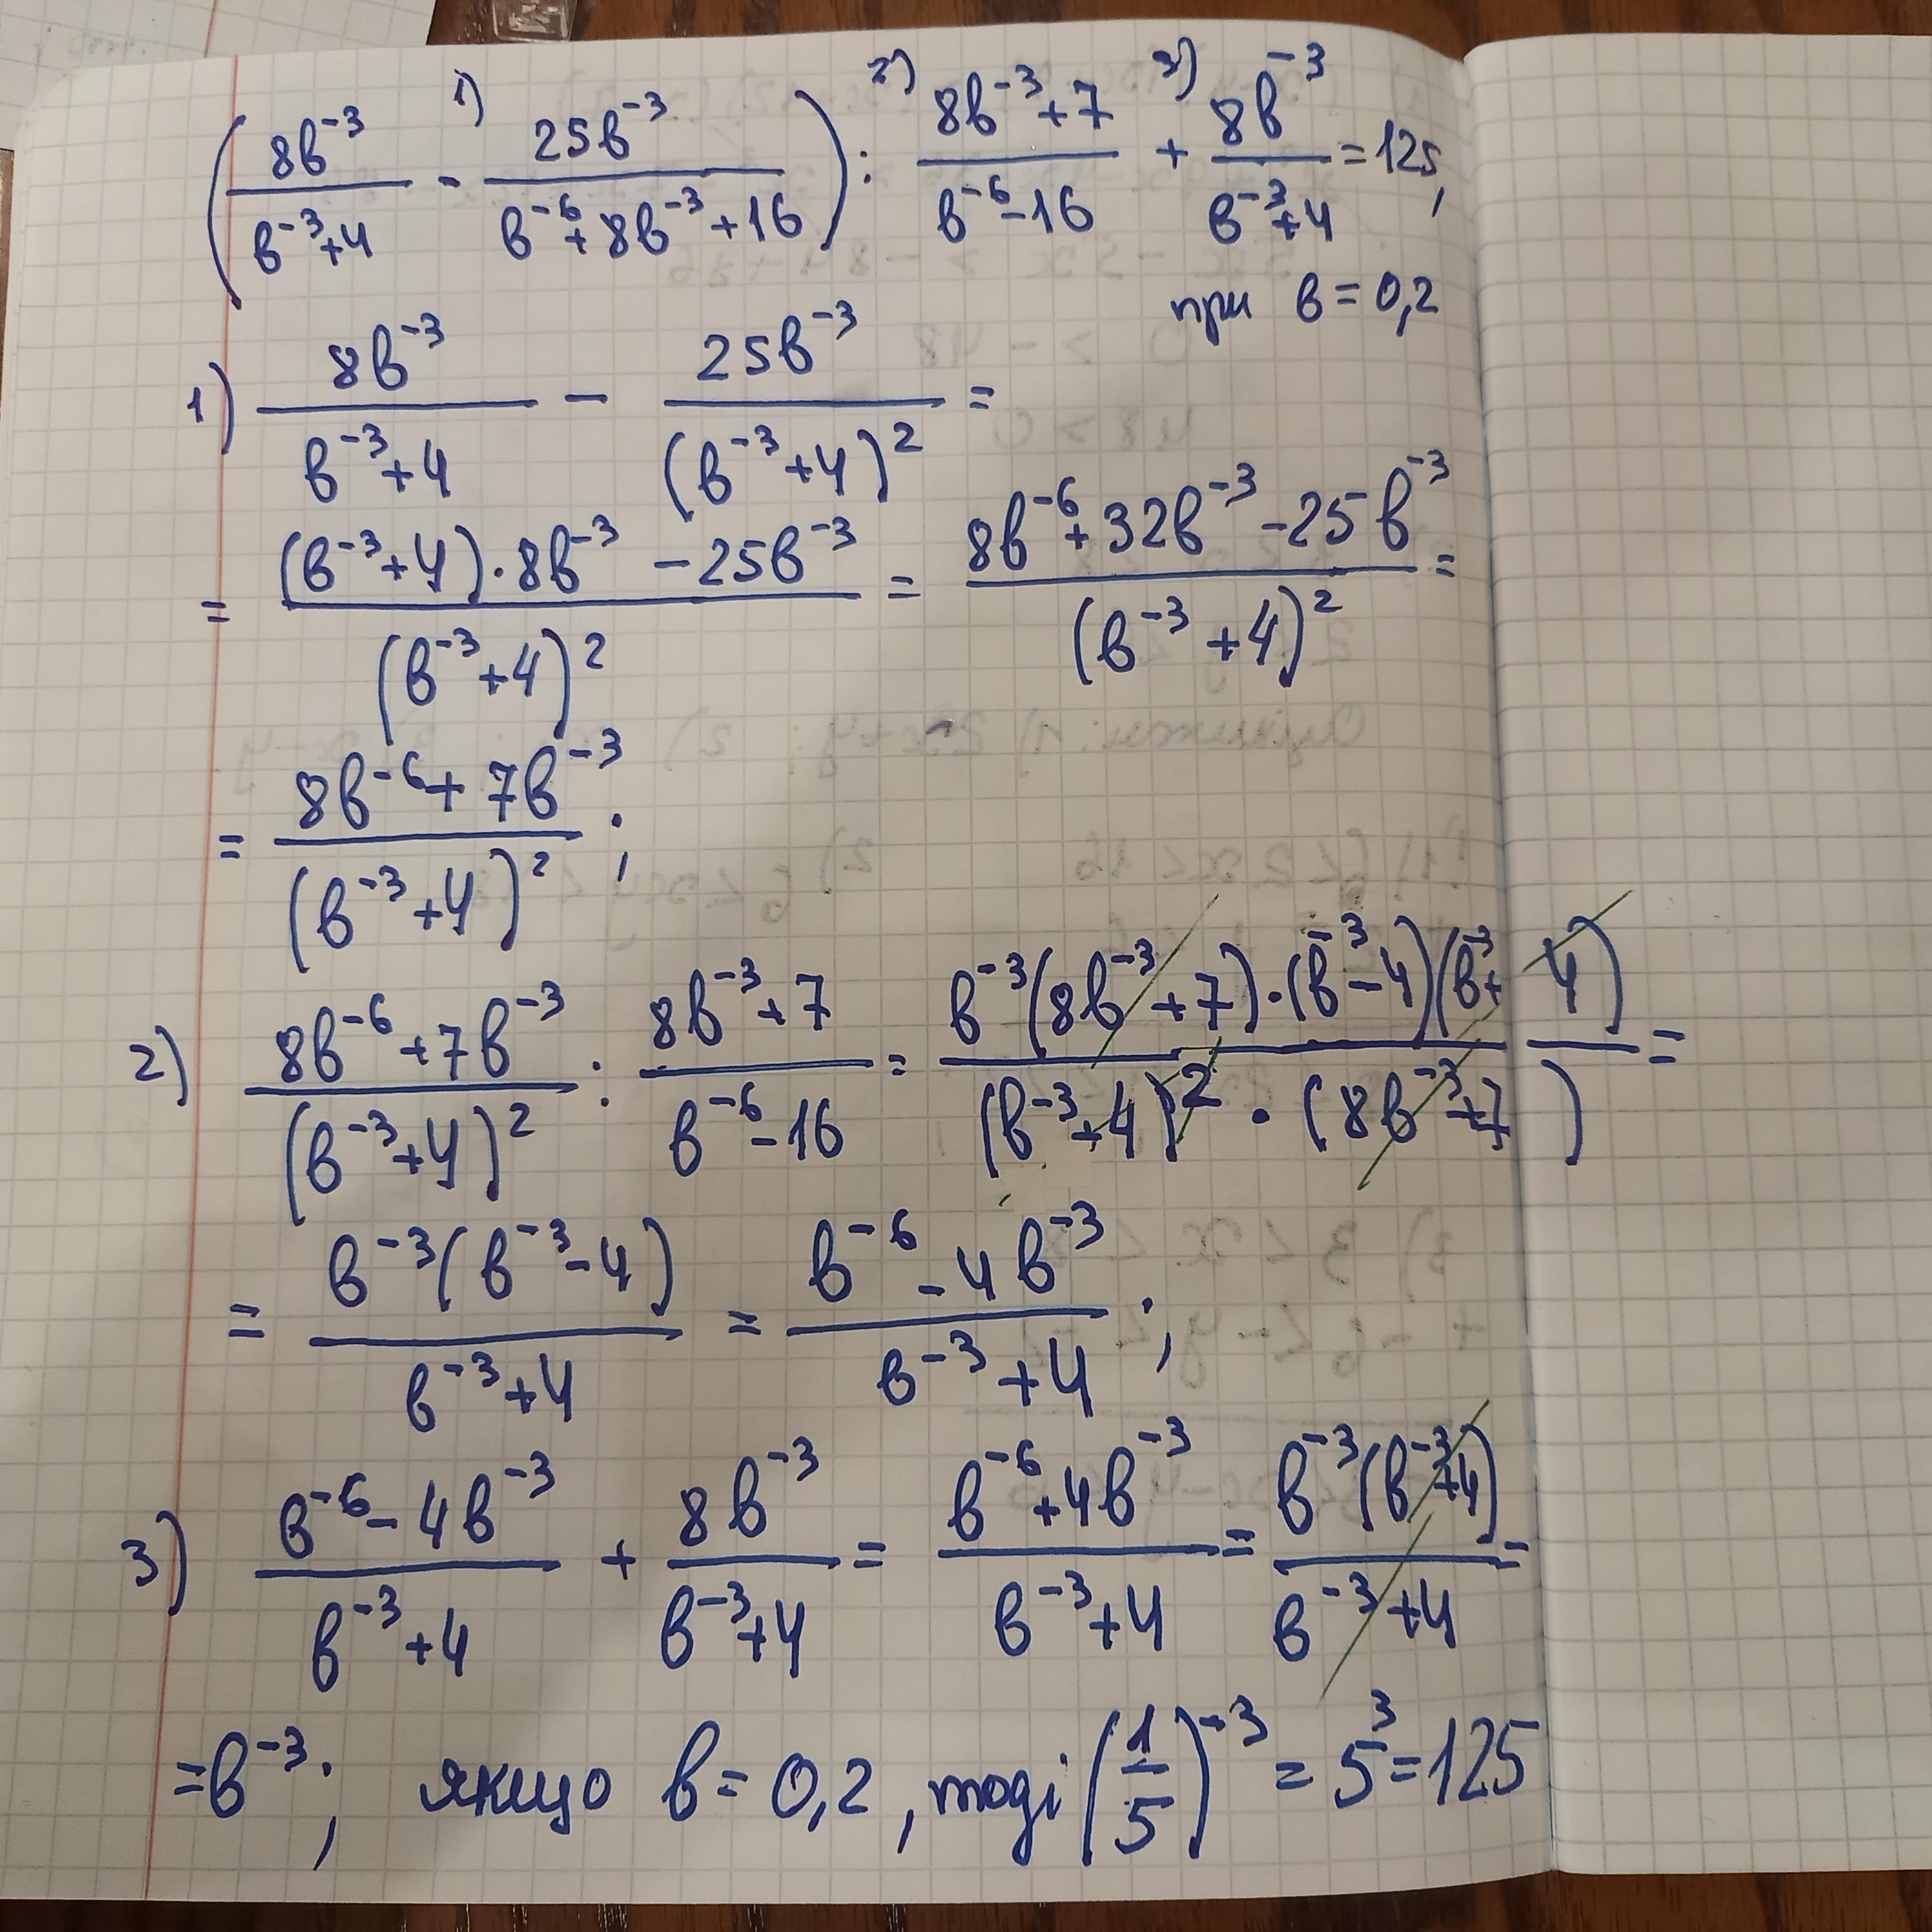 (8b⁻³/(b⁻³+4) - 25b⁻³/(b⁻⁶+8b⁻³+16)) : (8b⁻³+7)/(b⁻⁶-16) + 8b⁻³/(b⁻³+4) = 125,
1) 2) 3)
при b = 0,2
1) 8b⁻³/(b⁻³+4) - 25b⁻³/(b⁻³+4)² =
= ((b⁻³+4)·8b⁻³ - 25b⁻³)/(b⁻³+4)² = (8b⁻⁶+32b⁻³-25b⁻³)/(b⁻³+4)² =
= (8b⁻⁶+7b⁻³)/(b⁻³+4)² ;
2) (8b⁻⁶+7b⁻³)/(b⁻³+4)² : (8b⁻³+7)/(b⁻⁶-16) = (b⁻³(8b⁻³+7)·(b⁻³-4)(b⁻³+4))/((b⁻³+4)²·(8b⁻³+7)) =
= b⁻³(b⁻³-4)/(b⁻³+4) = (b⁻⁶-4b⁻³)/(b⁻³+4) ;
3) (b⁻⁶-4b⁻³)/(b⁻³+4) + 8b⁻³/(b⁻³+4) = (b⁻⁶+4b⁻³)/(b⁻³+4) = b⁻³(b⁻³+4)/(b⁻³+4) =
= b⁻³; якщо b = 0,2, тоді (1/5)⁻³ = 5³ = 125